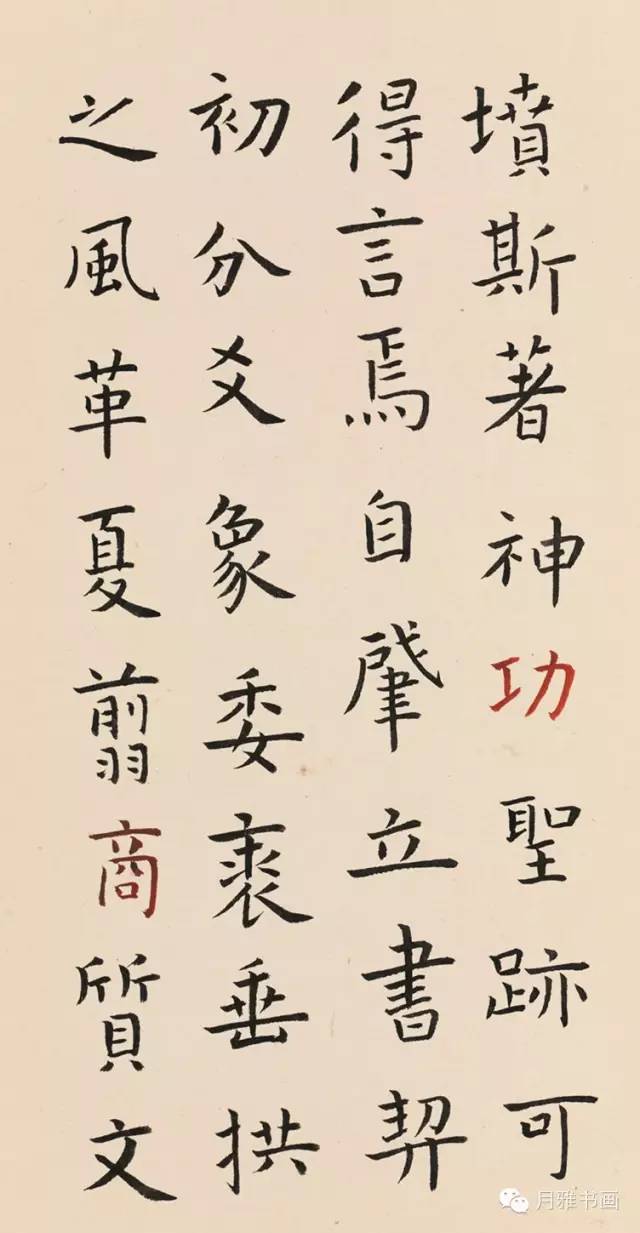 墳斯著神功聖跡可
得言焉自肇立書契
初分爻象委裘垂拱
之風革夏翦商質文
月雅书画